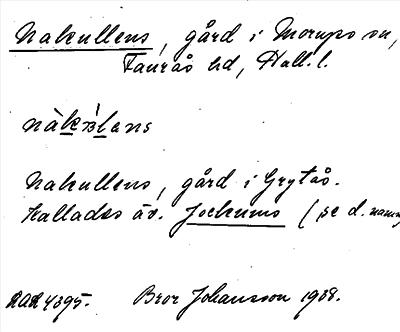 Nakullens, gård i Morups sn,
Faurås hd, Hall. l.
Nakullens, gård i Grytås.
Kallades äv. Jockums (se d. namn
Bror Johansson 1938.